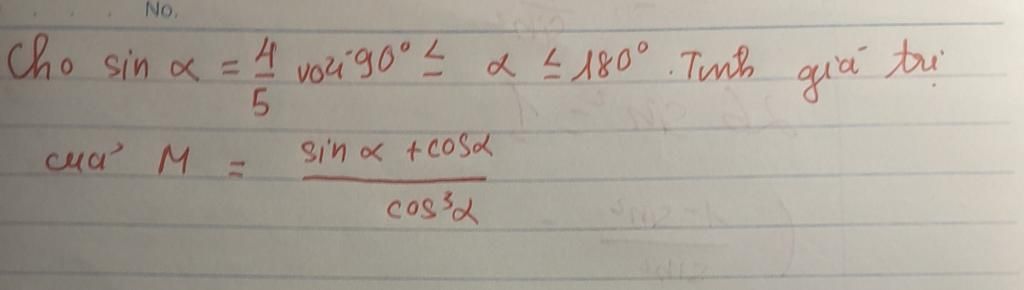 No.
Cho sin α = 4/5 với 90° ≤ α ≤ 180°. Tính giá trị
của M = (sin α + cosα)/(cos³α)